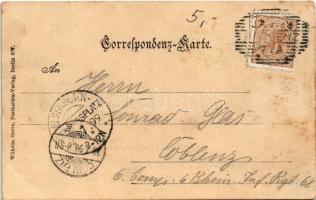 5,-
Correspondenz-Karte.
An
Herrn
Conrad Glas
Coblenz
6. Comp. 6 Rhein. Inf. Rgt. 68
Wilhelm Stern, Postkarten-Verlag, Berlin SW.